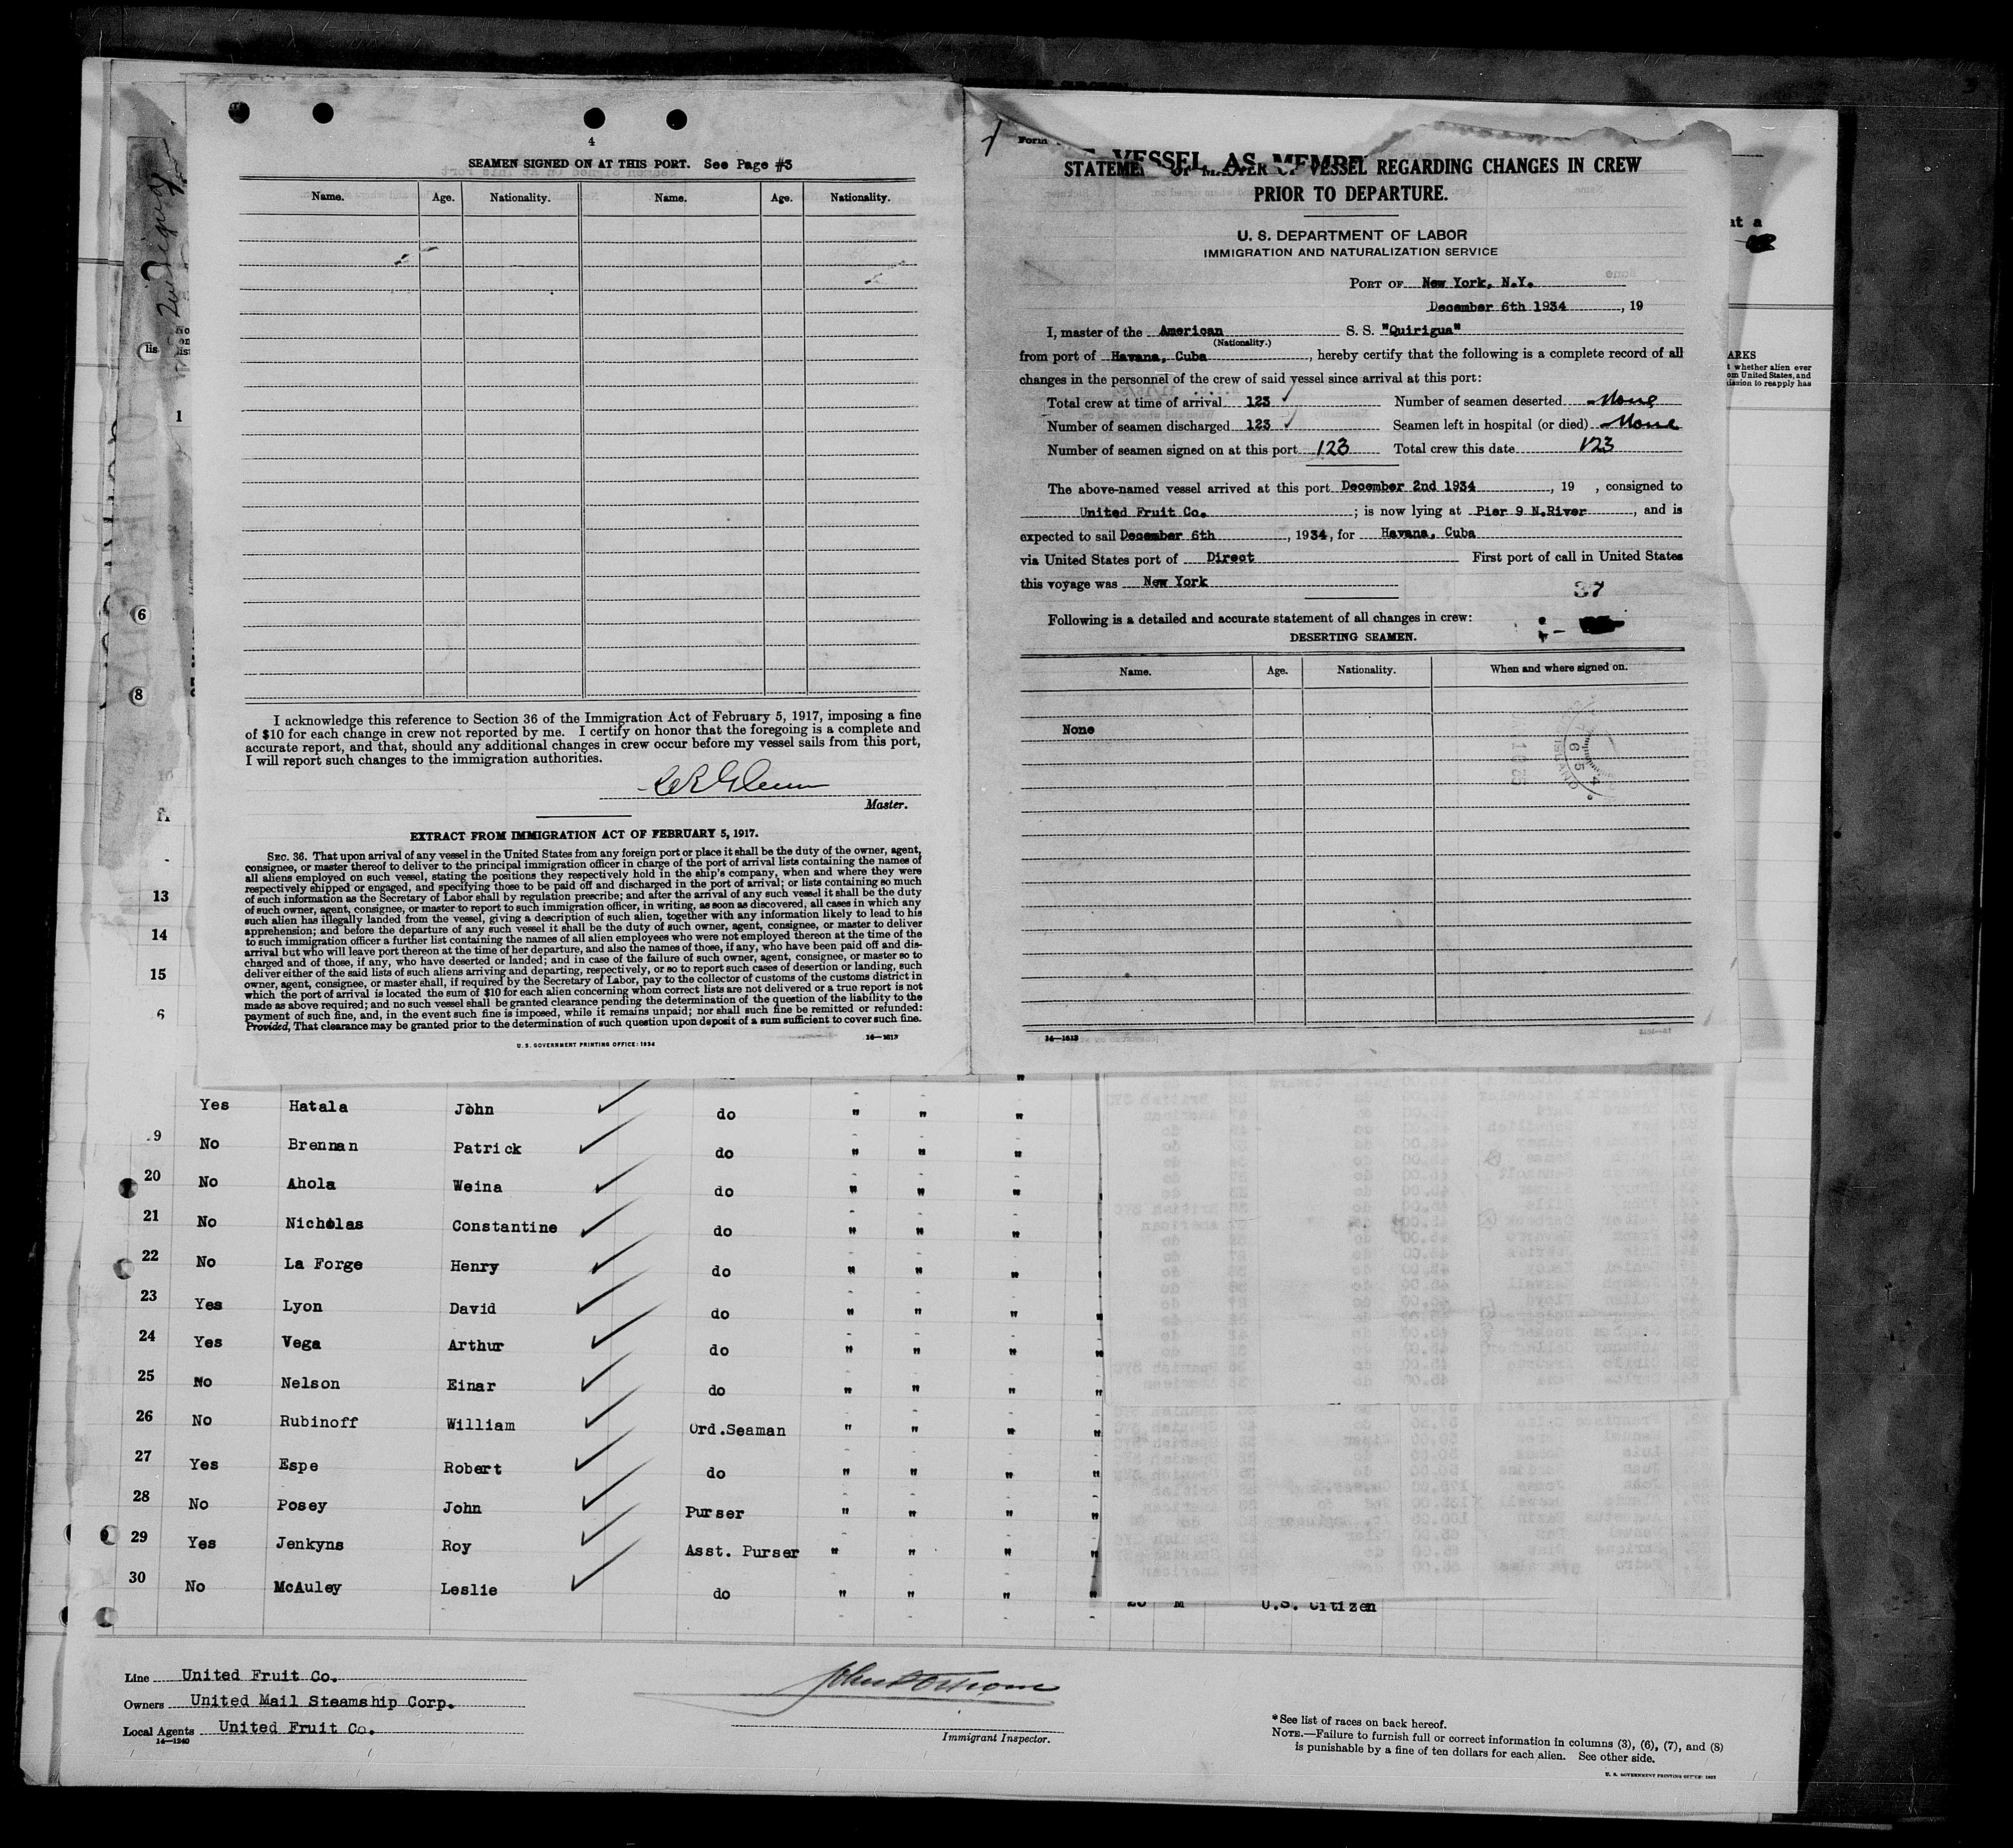 4
SEAMEN SIGNED ON AT THIS PORT. See Page #3
Name. Age. Nationality. Name. Age. Nationality.
I acknowledge this reference to Section 36 of the Immigration Act of February 5, 1917, imposing a fine
of $10 for each change in crew not reported by me. I certify on honor that the foregoing is a complete and
accurate report, and that, should any additional changes in crew occur before my vessel sails from this port,
I will report such changes to the immigration authorities.
Master.
EXTRACT FROM IMMIGRATION ACT OF FEBRUARY 5, 1917.
SEC. 36. That upon arrival of any vessel in the United States from any foreign port or place it shall be the duty of the owner, agent,
consignee, or master thereof to deliver to the principal immigration officer in charge of the port of arrival lists containing the names of
all aliens employed on such vessel, stating the positions they respectively hold in the ship's company, when and where they were
respectively shipped or engaged, and specifying those to be paid off and discharged in the port of arrival; or lists containing so much
of such information as the Secretary of Labor shall by regulation prescribe; and after the arrival of any such vessel it shall be the duty
of such owner, agent, consignee, or master to report to such immigration officer, in writing, as soon as discovered, all cases in which any
such alien has illegally landed from the vessel, giving a description of such alien, together with any information likely to lead to his
apprehension; and before the departure of any such vessel it shall be the duty of such owner, agent, consignee, or master to deliver
to such immigration officer a further list containing the names of all alien employees who were not employed thereon at the time of the
arrival but who will leave port thereon at the time of her departure, and also the names of those, if any, who have been paid off and dis-
charged and of those, if any, who have deserted or landed; and in case of the failure of such owner, agent, consignee, or master so to
deliver either of the said lists of such aliens arriving and departing, respectively, or so to report such cases of desertion or landing, such
owner, agent, consignee, or master shall, if required by the Secretary of Labor, pay to the collector of customs of the customs district in
which the port of arrival is located the sum of $10 for each alien concerning whom correct lists are not delivered or a true report is not
made as above required; and no such vessel shall be granted clearance pending the determination of the question of the liability to the
payment of such fine, and, in the event such fine is imposed, while it remains unpaid; nor shall such fine be remitted or refunded:
Provided, That clearance may be granted prior to the determination of such question upon deposit of a sum sufficient to cover such fine.
U. S. GOVERNMENT PRINTING OFFICE: 1934 14—1613
Form
VESSEL AS MEMBE
STATEMENT OF MASTER OF VESSEL REGARDING CHANGES IN CREW
PRIOR TO DEPARTURE.
U. S. DEPARTMENT OF LABOR
IMMIGRATION AND NATURALIZATION SERVICE
PORT OF New York, N.Y.
December 6th 1934, 19
I, master of the American S. S. "Quirigua"
(Nationality.)
from port of Havana, Cuba, hereby certify that the following is a complete record of all
changes in the personnel of the crew of said vessel since arrival at this port:
Total crew at time of arrival 123 Number of seamen deserted None
Number of seamen discharged 123 Seamen left in hospital (or died) None
Number of seamen signed on at this port 123 Total crew this date 123
The above-named vessel arrived at this port December 2nd 1934, 19 , consigned to
United Fruit Co. ; is now lying at Pier 9 N.River, and is
expected to sail December 6th, 1934, for Havana, Cuba
via United States port of Direct First port of call in United States
this voyage was New York
37
Following is a detailed and accurate statement of all changes in crew:
DESERTING SEAMEN.
Name. Age. Nationality. When and where signed on.
None
14—1613
at a
ARKS
t whether alien ever
om United States, and
ission to reapply has
lis
1
6
8
13
14
15
6
Yes Hatala John do " " "
9 No Brennan Patrick do " " "
20 No Ahola Weina do " " "
21 No Nicholas Constantine do " " "
22 No La Forge Henry do " " "
23 Yes Lyon David do " " " "
24 Yes Vega Arthur do " " " "
25 No Nelson Einar do " " " "
26 No Rubinoff William Ord.Seaman " " " "
27 Yes Espe Robert do " " " "
28 No Posey John Purser " " " "
29 Yes Jenkyns Roy Asst. Purser " " " "
30 No McAuley Leslie do " " " " M U.S. Citizen
Line United Fruit Co.
Owners United Mail Steamship Corp.
Local Agents United Fruit Co.
14—1240
Immigrant Inspector.
*See list of races on back hereof.
NOTE.—Failure to furnish full or correct information in columns (3), (6), (7), and (8)
is punishable by a fine of ten dollars for each alien. See other side.
U. S. GOVERNMENT PRINTING OFFICE: 1933